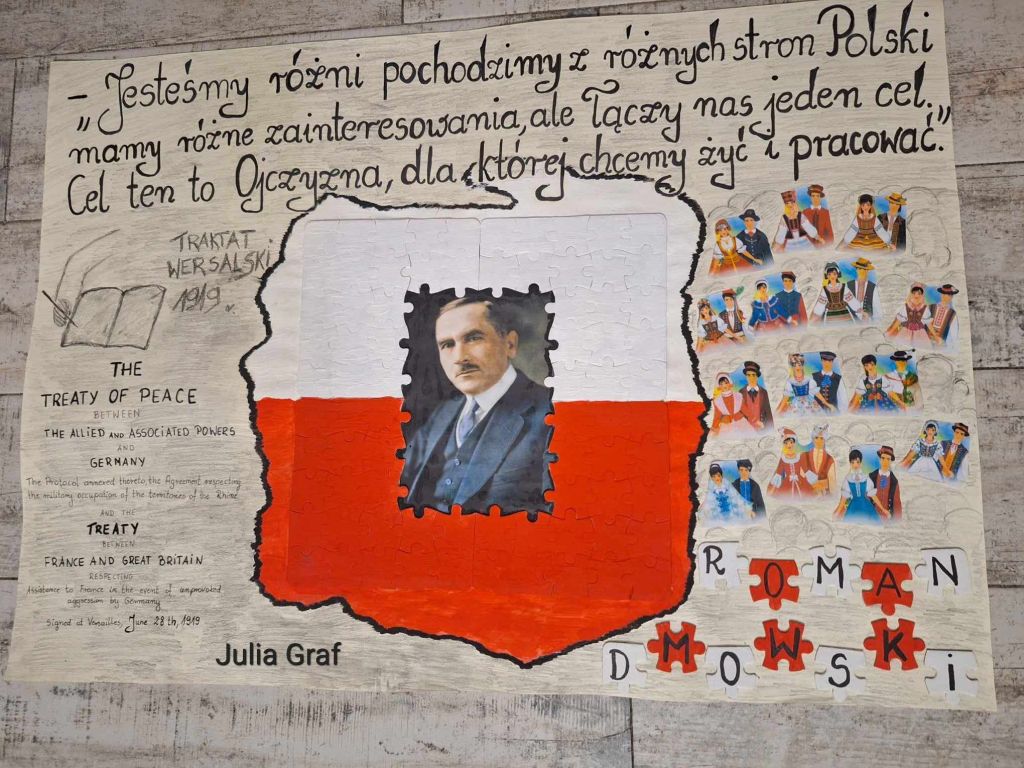 - „Jesteśmy różni pochodzimy z różnych stron Polski
mamy różne zainteresowania, ale łączy nas jeden cel.
Cel ten to Ojczyzna, dla której chcemy żyć i pracować."
TRAKTAT
WERSALSKI
1919 r.
THE
TREATY OF PEACE
BETWEEN
THE ALLIED AND ASSOCIATED POWERS
AND
GERMANY
The Protocol annexed thereto, the Agreement respecting
the military occupation of the territories of the Rhine
AND THE
TREATY
BETWEEN
FRANCE AND GREAT BRITAIN
RESPECTING
Assistance to France in the event of unprovoked
aggression by Germany
Signed at Versailles, June 28th, 1919
Julia Graf
ROMAN
DMOWSKi